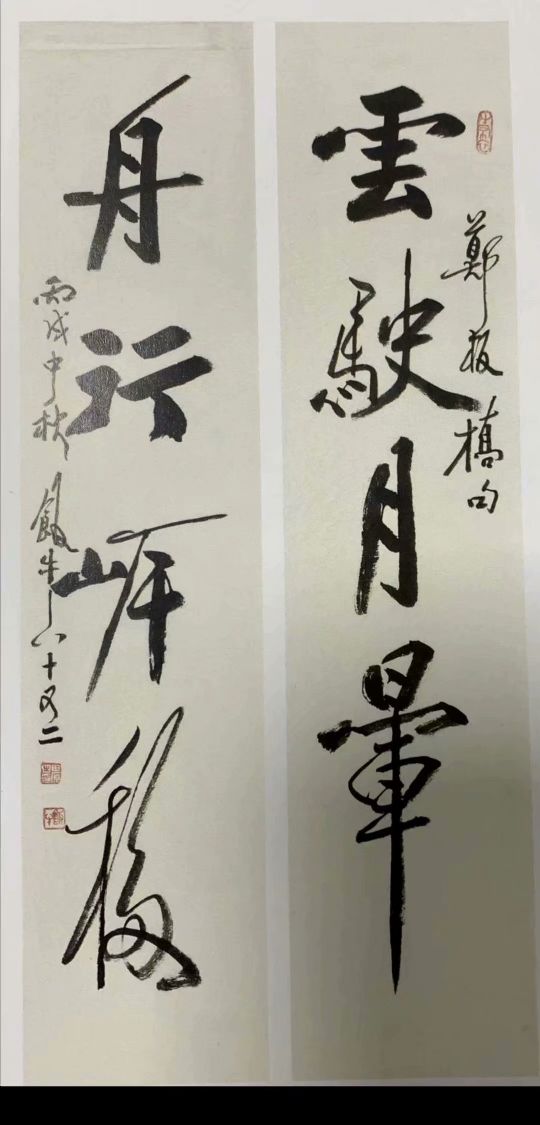 雲駛月暈
鄭板橋句
舟行岸移
丙戌中秋飯牛八十又二